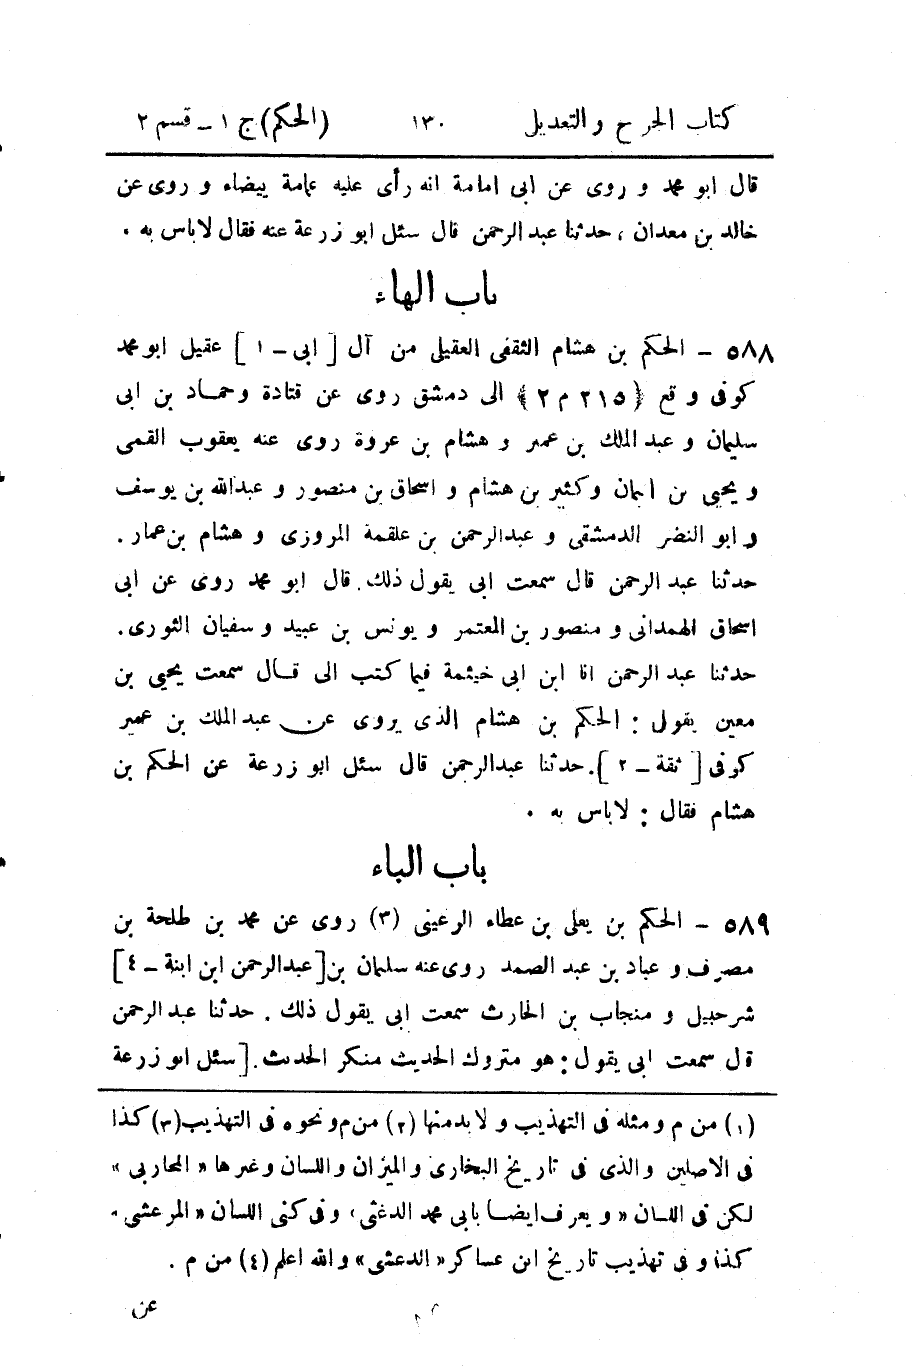 كتاب الجرح والتعديل ١٣٠ (الحكم) ج ١ - قسم ٢
قال ابو محمد و روى عن ابى امامة انه رأى عليه عمامة بيضاء و روى عن
خالد بن معدان ، حدثنا عبد الرحمن قال سئل ابو زرعة عنه فقال لاباس به .
باب الهاء
٥٨٨ - الحكم بن هشام الثقفى العقيلى من آل [ ابى - ١ ] عقيل ابو محمد
كوفى وقع ﴿ ٢١٥ م ٢ ﴾ الى دمشق روى عن قتادة وحماد بن ابى
سليمان و عبد الملك بن عمير و هشام بن عروة روى عنه يعقوب القمى
و يحيى بن ايمان وكثير بن هشام و اسحاق بن منصور و عبدالله بن يوسف
و ابو النضر الدمشقى و عبدالرحمن بن علقمة المروزى و هشام بن عمار .
حدثنا عبد الرحمن قال سمعت ابى يقول ذلك . قال ابو محمد روى عن ابى
اسحاق الهمدانى و منصور بن المعتمر و يونس بن عبيد و سفيان الثورى .
حدثنا عبد الرحمن انا ابن ابى خيثمة فيما كتب الى قال سمعت يحيى بن
معين يقول : الحكم بن هشام الذى يروى عن عبد الملك بن عمير
كوفى [ ثقة - ٢ ] . حدثنا عبدالرحمن قال سئل ابو زرعة عن الحكم بن
هشام فقال : لاباس به .
باب الياء
٥٨٩ - الحكم بن يعلى بن عطاء الرعينى (٣) روى عن محمد بن طلحة بن
مصرف و عباد بن عبد الصمد روى عنه سليمان بن [عبدالرحمن ابن ابنة - ٤]
شرحبيل و منجاب بن الحارث سمعت ابى يقول ذلك . حدثنا عبد الرحمن
قال سمعت ابى يقول : هو متروك الحديث منكر الحديث . [ سئل ابو زرعة
(١) من م و مثله فى التهذيب و لا بد منها (٢) من م و نحوه فى التهذيب (٣) كذا
فى الاصلين والذى فى تاريخ البخارى والميزان واللسان وغيرها « المحاربى »
لكن فى اللسان « و يعرف ايضا بابى محمد الدغشى ، وفى كنى اللسان « المرعشى .
كذا و فى تهذيب تاريخ ابن عساكر « الدعشى » والله اعلم (٤) من م .
عن